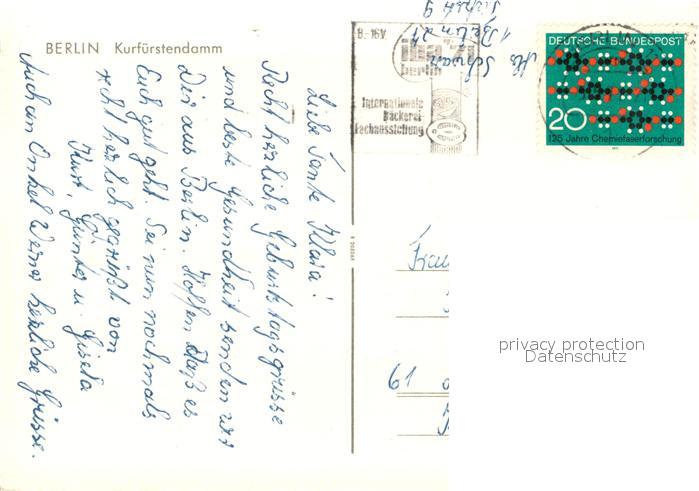 BERLIN Kurfürstendamm
Liebe Tante Klara!
Recht herzliche Geburtstagsgrüsse
und beste Gesundheit senden wir
Dir aus Berlin. Hoffen daß es
Euch gut geht. Sei nun nochmals
recht herzlich gegrüßt von
Kurt, Günter u. Gisela
Auch an Onkel Werner herzliche Grüsse.
8.-16.V
iba 71
berlin
Internationale
Bäckerei-
Fachausstellung
1 Berlin 21
DEUTSCHE BUNDESPOST
20
125 Jahre Chemiefaserforschung
Frau
61
privacy protection
Datenschutz